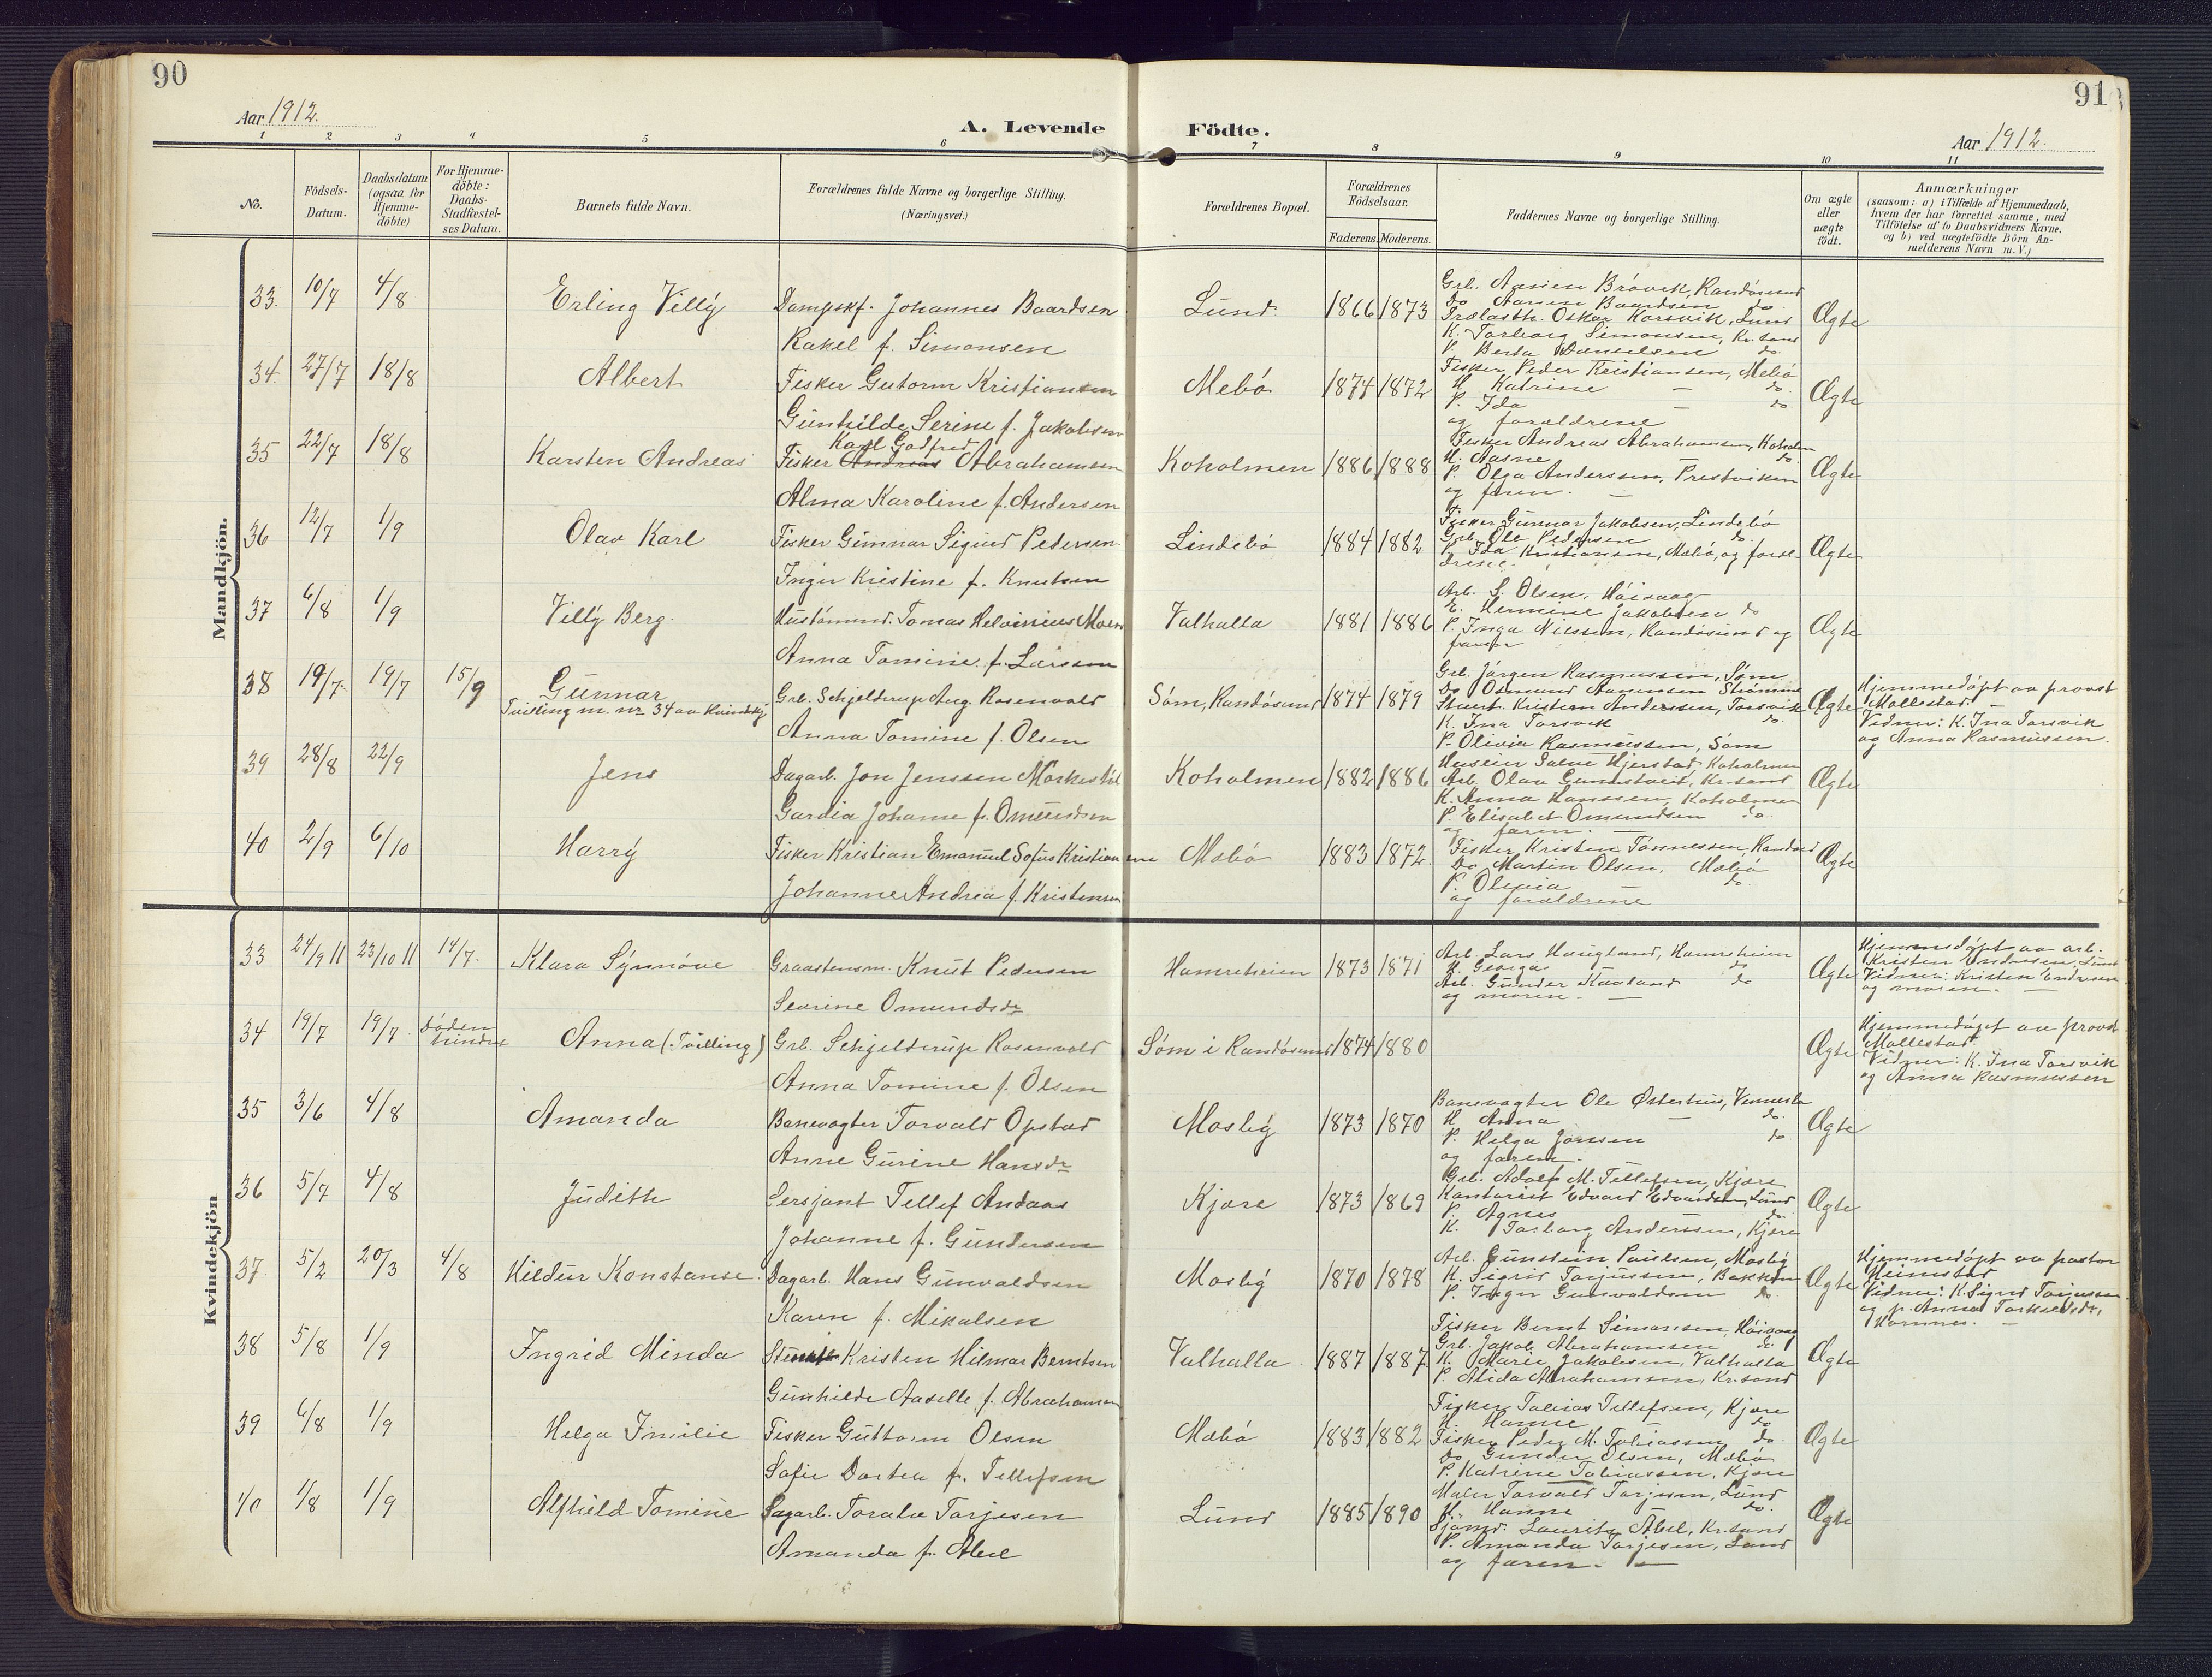 90
91
Aar 1912.
A. Levende Födte.
Aar 1912.
1 2 3 4 5 6 7 8 9 10 11
No.
Födsels-Datum.
Daabsdatum (ogsaa for Hjemme-döbte)
For Hjemme-döbte: Daabs-Stadfæstel-ses Datum.
Barnets fulde Navn.
Forældrenes fulde Navne og borgerlige Stilling.
(Næringsvei.)
Forældrenes Bopæl.
Forældrenes Födselsaar.
Faderens. Moderens.
Faddernes Navne og borgerlige Stilling.
Om ægte eller uægte födt.
Anmærkninger
(saasom: a) i Tilfælde af Hjemmedaab,
hvem der har forrettet samme, med
Tilföielse af to Daabsvidners Navne,
og b) ved uægtefödte Börn An-
melderens Navn m. V.)
Mandkjön.
33. 10/7 4/8 Erling Villy Dampskf. Johannes Baardsen Lund 1866 1873 Ægte
Rakel f. Simonsen
Grb. Aanen Brövik, Randösund
do Aanen Baardsen do.
Trælasth. Oskar Korsvik, Lund
K. Torborg Simonsen, Kr.sand
P. Berta Danielsen do.
34. 27/7 18/8 Albert Fisker Gutorm Kristiansen Mebö 1874 1872 Ægte
Gunhilde Serine f. Jakobsen
Fisker Peder Kristiansen, Mebö
H. Katrine — do.
P. Ida — do.
og forældrene
35 22/7 18/8 Karsten Andreas Karl Godfred
Fisker Andreas Abrahamsen Koholmen 1886 1888 Ægte
Alma Karoline f. Andersen
Fisker Andreas Abrahamsen, Koholm
H. Aasne — do.
P. Olga Anderssen, Prestviken
og faren. —
36 12/7 1/9 Olav Karl Fisker Gunnar Sigurd Pedersen Lindebö 1884 1882 Ægte
Inger Kristine f. Knutsen
Fisker Gunnar Jakobsen, Lindebö
Grb. Ole Pedersen do.
P. Ida Kristiansen, Mæbö, og foræl-
drene.
37 6/8 1/9 Villy Berg. Hustömmd. Tomas Helvinius Moen Valhalla 1881 1886 Ægte
Anna Tomine f. Larsen
Arb. S. Olsen, Höivaag
E. Hermine Jakobsen do
P. Inga Nilssen, Randösund og
faren
38 19/7 19/7 15/9 Gunnar
Tvilling m. nr 34 av Kvindekj. Grb. Schjelderup Aug. Rosenvold Söm, Randösund 1874 1879 Ægte
Anna Tomine f. Olsen
Grb. Jörgen Rasmussen, Söm
do Osmund Aanensen Strömme
Stuert. Kristen Anderssen, Torsvik
K. Ina Torsvik do.
P. Olivia Rasmussen, Söm
Hjemmedöpt av provst
Mollestad. —
Vidner: K. Ina Torsvik
og Anna Rasmussen.
39 28/8 22/9 Jens Dagarb. Jon Jenssen Mörkestöl Koholmen 1882 1886 Ægte
Gardia Johanne f. Omundsen
Salve Hjerstad Koholmen
Arb. Olav Gunnstveit, Kr.sand
K. Anna Hanssen, Koholmen
P. Elisabet Omundsen do.
og faren. —
40 2/9 6/10 Harry Fisker Kristian Emanuel Sofus Kristiansen Mæbö 1883 1872. Ægte
Johanne Andrea f. Kristensen
Fisker Kristen Tönnessen Randösd
do Martin Olsen, Mæbö
P. Olivia do.
og forældrene
Kvindekjön
33 24/9 11 23/10 11 14/7. Klara Synnöve Graastensm. Knut Pedersen Hamreheien 1873 1871 Ægte
Severine Omundsdr
Arb. Lars Haugland, Hamreheien
H. Georga do
Arb. Gunder Kaaland do
og moren. —
Hjemmedöpt av arb.
Kristen Endresen, Lund
Vidner: Kristen Endresen
og moren. —
34 19/7 19/7 döden hindret Anna (Tvilling) Grb. Schjelderup Rosenvold Söm i Randösund 1874 1880 Ægte
Anna Tomine f. Olsen
Hjemmedöpt av provst
Mollestad.
Vidner: K. Ina Torsvik
og Anna Rasmussen
35 3/6 4/8 Amanda Banevogter Torvald Opstad Mosby 1873 1870 Ægte
Anne Gurine Hansdr
Banevogter Ole Østerhus, Vennesla
H. Anna — do.
P. Helga Jonsen do.
og faren.
36 5/7 4/8 Judith Sersjant Tellef Andaas Kjøre 1873 1869 Ægte
Johanne f. Gundersen
Grb. Adolf M. Tellefsen, Kjøre
Kontorist Edvard Edvardsen, Lund
P. Agnes do.
K. Torborg Anderssen, Kjøre
37. 5/2 20/3 4/8 Hildur Konstanse Dagarb. Hans Gunvaldsen Mosby 1870 1878 Ægte
Karen f. Mikalsen
Arb. Gunstein Paulsen, Mosby
K. Sigrid Torjussen, Bakken
P. Inger Gunvaldsen do
Hjemmedöpt av pastor
Heimstad
Vidner: K. Sigrid Torjussen
og p. Anna Torkildsdr,
Hornnes. —
38 5/8 1/9 Ingrid Minda Kristen Hilmar Berntsen Valhalla 1887 1887 Ægte
Gunhilde Aaselle f. Abrahamsen
Fisker Bernt Simonsen, Höivaag
Grb. Jakob Abrahamsen do.
K. Marie Jakobsen, Valhalla
P. Alida Abrahamsen, Kr.sand
39 6/8 1/9 Helga Emilie Fisker Guttorm Olsen Mæbö 1883 1882 Ægte
Sofie Dortea f. Tellefsen
Fisker Tobias Tellefsen, Kjøre
H. Hanne — do
Fisker Peder M. Tobiassen do.
do Gunder Olsen, Mæbö
P. Katrine Tobiassen, Kjøre
40 1/8 1/9 Alfhild Tomine Dagarb. Toralv Torjesen Lund 1885 1890 Ægte
Amanda f. Abel
Maler Torvald Torjesen, Lund
H. Hanne — do.
Sjömd. Lauritz Abel, Kr.sand
P. Amanda Torjesen, Lund
og faren. —